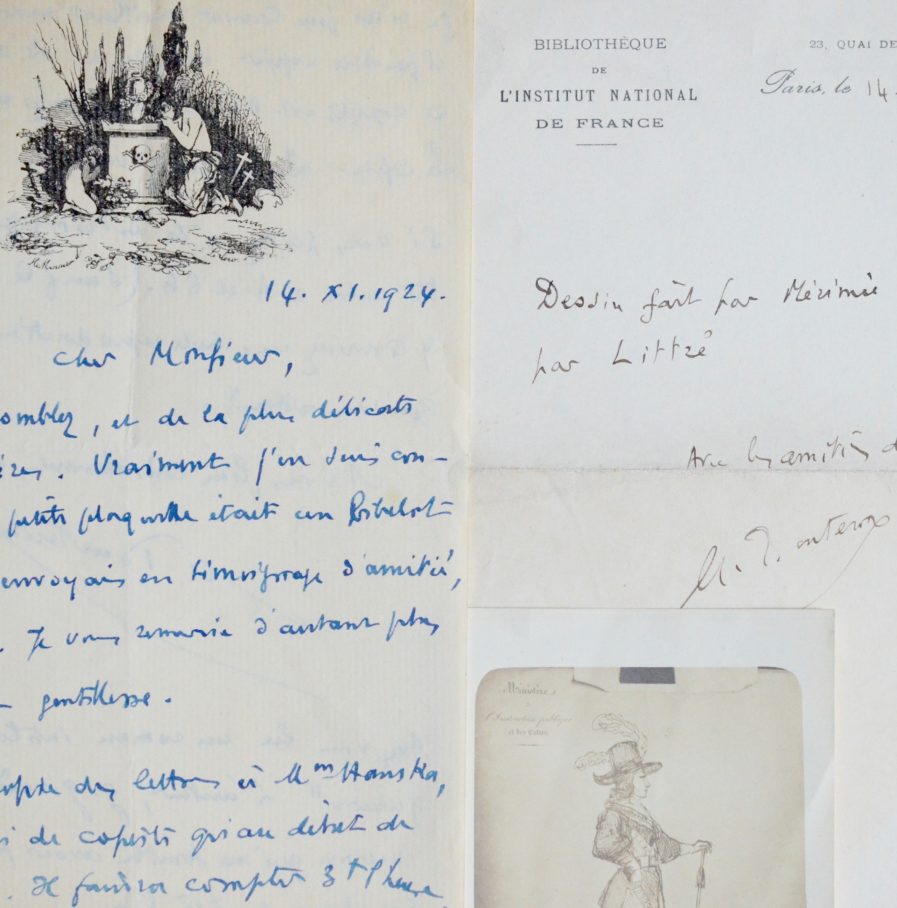 14. XI. 1924.
Cher Monsieur,
comblez, et de la plus délicate
Vraiment j'en suis con-
petite plaquette était un Bibelot
envoyais en témoignage d'amitié,
Je vous remercie d'autant plus
gentillesse.
copie des lettres à Mme Hanska,
de copiste qui au début de
Il faudra compter 3f l'heure
BIBLIOTHÈQUE
DE
L'INSTITUT NATIONAL
DE FRANCE
23, QUAI DE
Paris, le 14.
Dessin fait par Mérimée
par Littré
Avec les amitiés d
Ministère
de
l'Instruction publique
et des Cultes